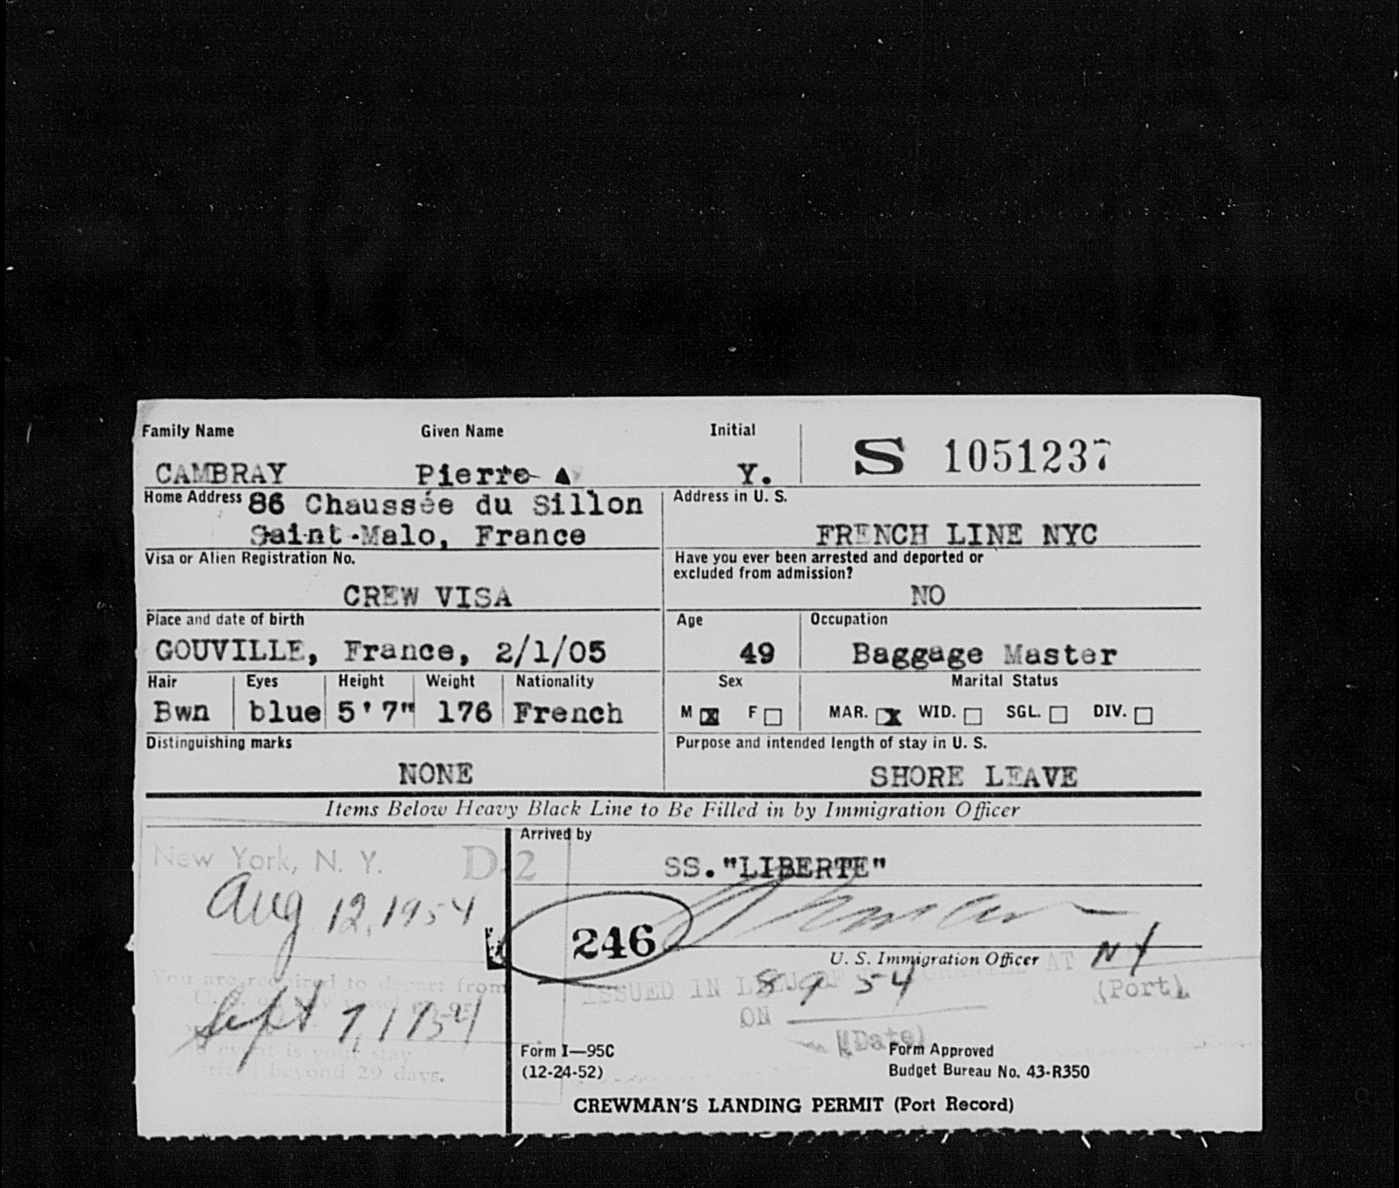 Family Name Given Name Initial
S 1051237
CAMBRAY Pierre Y.
Home Address 86 Chaussée du Sillon
Saint-Malo, France
Address in U. S.
FRENCH LINE NYC
Visa or Alien Registration No.
CREW VISA
Have you ever been arrested and deported or
excluded from admission?
NO
Place and date of birth
GOUVILLE, France, 2/1/05
Age Occupation
49 Baggage Master
Hair Eyes Height Weight Nationality
Bwn blue 5'7" 176 French
Sex Marital Status
M F MAR. WID. SGL. DIV.
Distinguishing marks
NONE
Purpose and intended length of stay in U. S.
SHORE LEAVE
Items Below Heavy Black Line to Be Filled in by Immigration Officer
New York, N. Y. D-2
Aug 12, 1954
You are required to depart from
Sept 7, 1954
beyond 29 days.
Arrived by
SS."LIBERTE"
246
U. S. Immigration Officer
NY
ISSUED IN AT (Port)
8 9 54
ON
(Date)
Form I—95C
(12-24-52)
Form Approved
Budget Bureau No. 43-R350
CREWMAN'S LANDING PERMIT (Port Record)